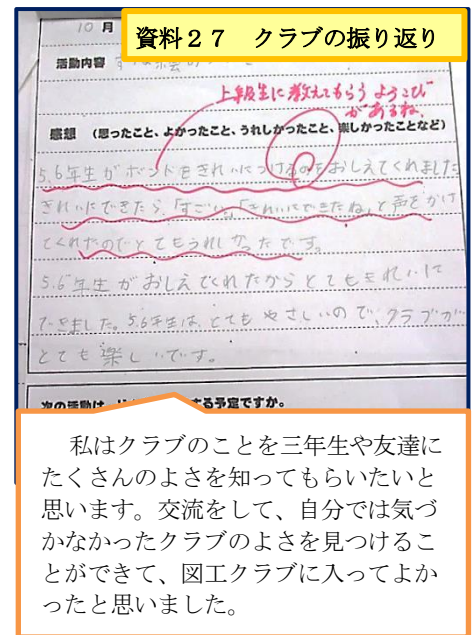 資料27 クラブの振り返り
10月
活動内容
上級生に教えてもらうよろこび
があるね。
感想 (思ったこと、よかったこと、うれしかったこと、楽しかったことなど)
5.6年生がボンドをきれいにつけるのをおしえてくれました
きれいにできたら、「すごい」「きれいにできたね」と声をかけ
てくれたのでとてもうれしかったです。
5.6年生がおしえてくれたからとてもきれいに
できました。5.6年生は、とてもやさしいので、クラブが
とても楽しいです。
次の活動は、する予定ですか。
私はクラブのことを三年生や友達に
たくさんのよさを知ってもらいたいと
思います。交流をして、自分では気づ
かなかったクラブのよさを見つけるこ
とができて、図工クラブに入ってよか
ったと思いました。